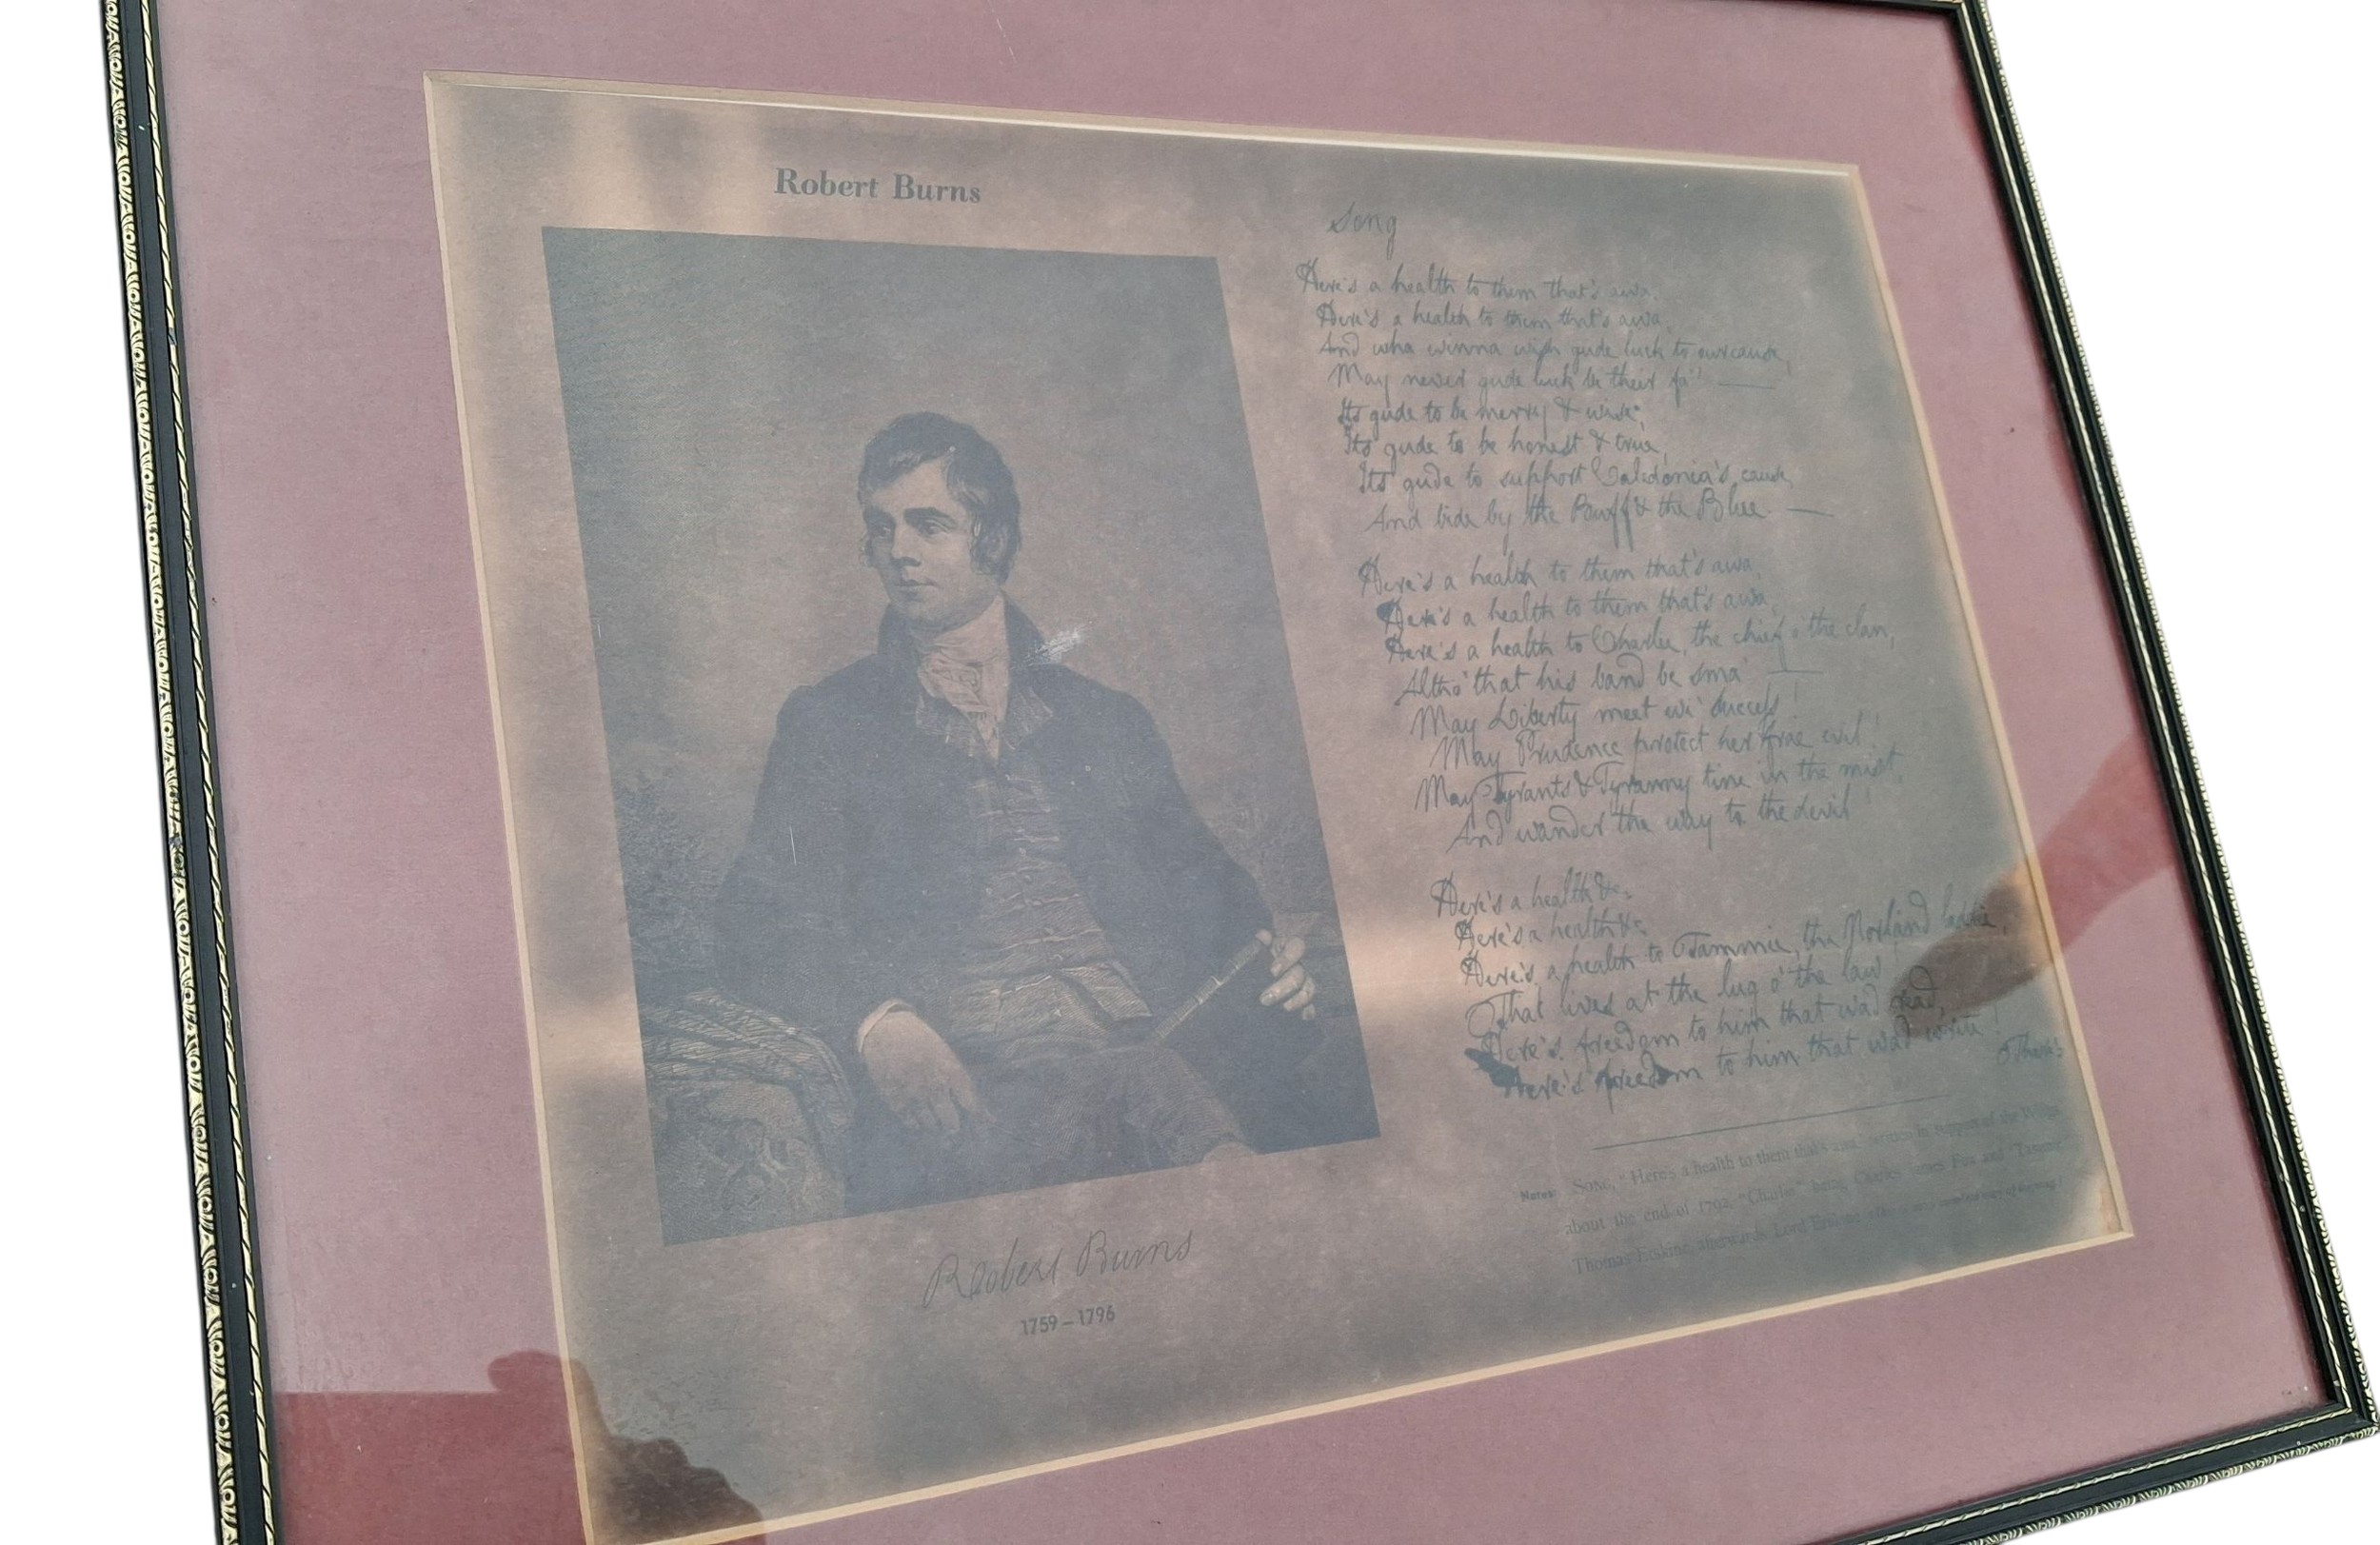 Robert Burns
Song
Here's a health to them that's awa,
Here's a health to them that's awa,
And wha winna wish gude luck to our cause,
May never gude luck be their fa'! —
Its gude to be merry & wise,
Its gude to be honest & true,
Its gude to support Caledonia's cause,
And bide by the Buff & the Blue. —
Here's a health to them that's awa,
Here's a health to them that's awa,
Here's a health to Charlie, the chief o' the clan,
Altho' that his band be sma' —
May Liberty meet wi' success!
May Prudence protect her frae evil!
May Tyrants & Tyranny tine in the mist,
And wander the way to the devil!
Here's a health &c.
Here's a health &c.
Here's a health to Tammie, the Norland laddie,
That lives at the lug o' the law
Here's freedom to him that wad read,
Here's freedom to him that wad write!
There's
Robert Burns
1759–1796
Notes: Song, "Here's a health to them that's awa," written in support of the Whigs
about the end of 1792, "Charlie" being Charles James Fox and "Tammie"
Thomas Erskine, afterwards Lord Erskine